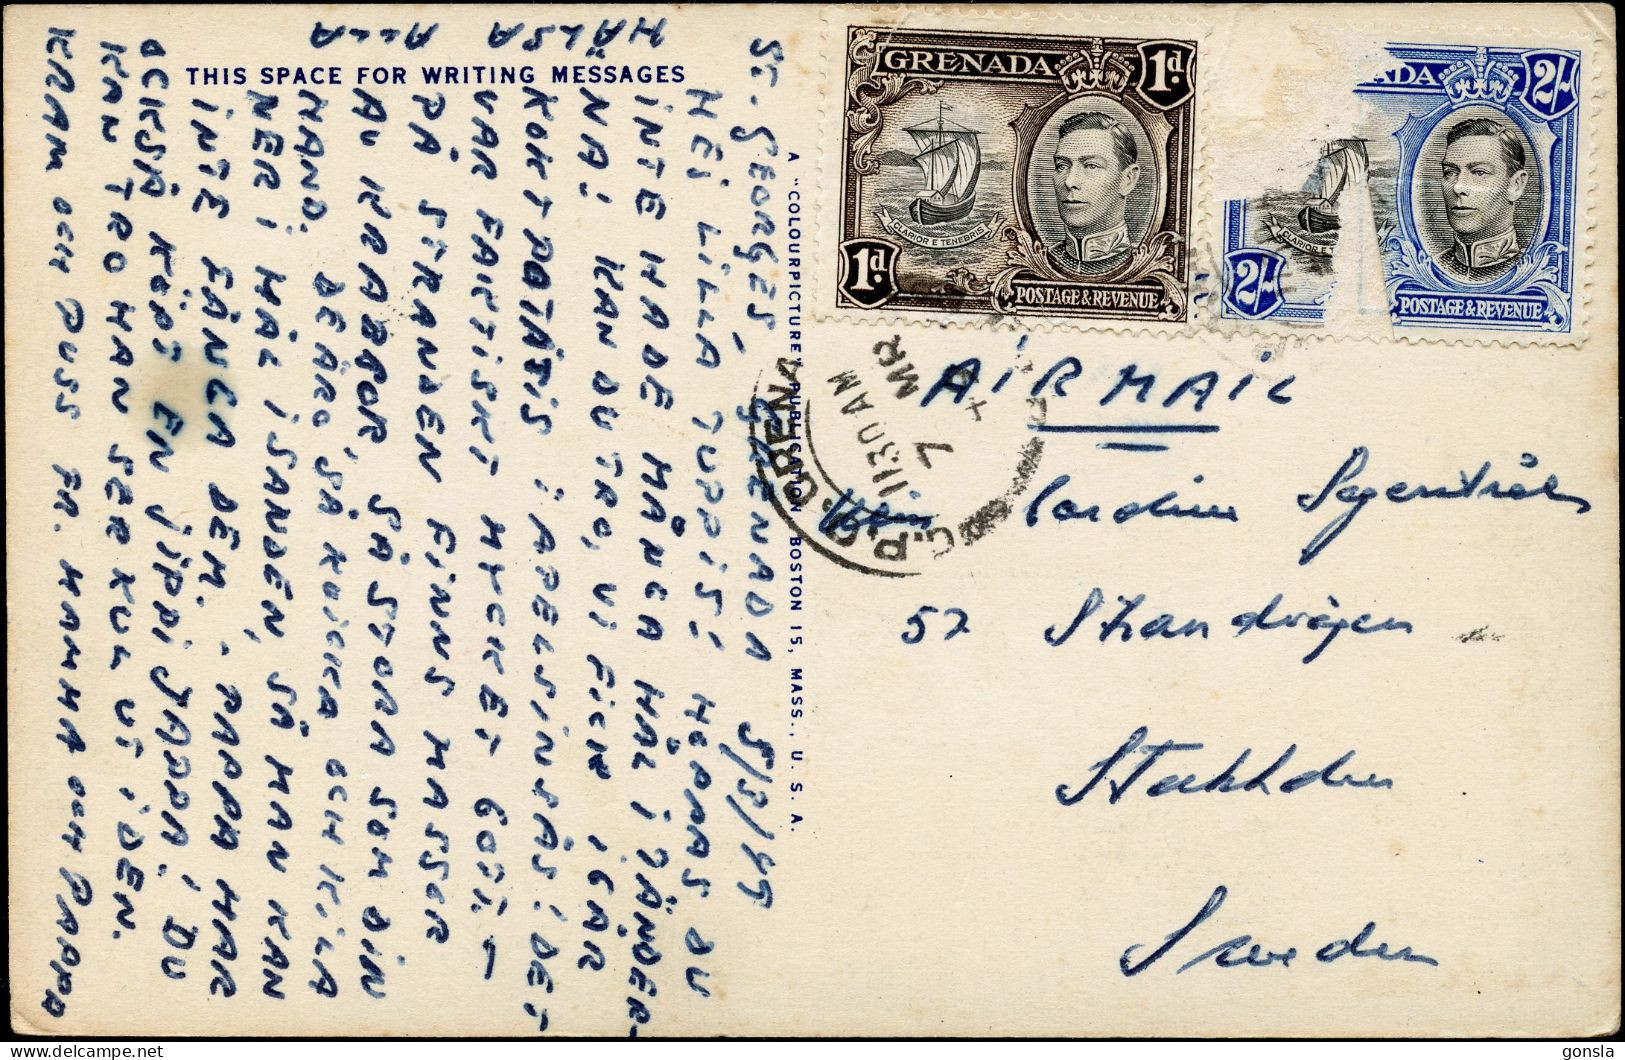 THIS SPACE FOR WRITING MESSAGES
St. GEORGES, GRENADA 5/3/49
HEJ LILLA TUPPIS! HOPPAS DU
INTE HADE MÅNGA HÅL I TÄNDER-
NA! KAN DU TRO, VI FICK IGÅR
KOKT POTATIS I APELSINSÅS! DET
VAR FAKTISKT MYCKET GOTT. -
PÅ STRANDEN FINNS MASSOR
AV KRABBOR, SÅ STORA SOM DIN
HAND. DE ÄRO SÅ KVICKA OCH KILA
NER I HÅL I SANDEN, SÅ MAN KAN
INTE FÅNGA DEM. - PAPPA HAR
OCKSÅ KÖPT EN JIPPI JAPPA! DU
KAN TRO HAN SER KUL UT I DEN.
KRAM OCH PUSS FR. MAMMA OCH PAPPA
HÄLSA
ALLA
A "COLOURPICTURE" PUBLICATION BOSTON 15, MASS., U. S. A.
GRENADA 1d.
CLARIOR E TENEBRIS
1d. POSTAGE & REVENUE
ADA 2/-
CLARIOR E TE
2/- POSTAGE & REVENUE
G.P.O. GRENA
1130 AM
7 MR
AIR MAIL
57 Strandvägen
Stockholm
Sweden
gonsla